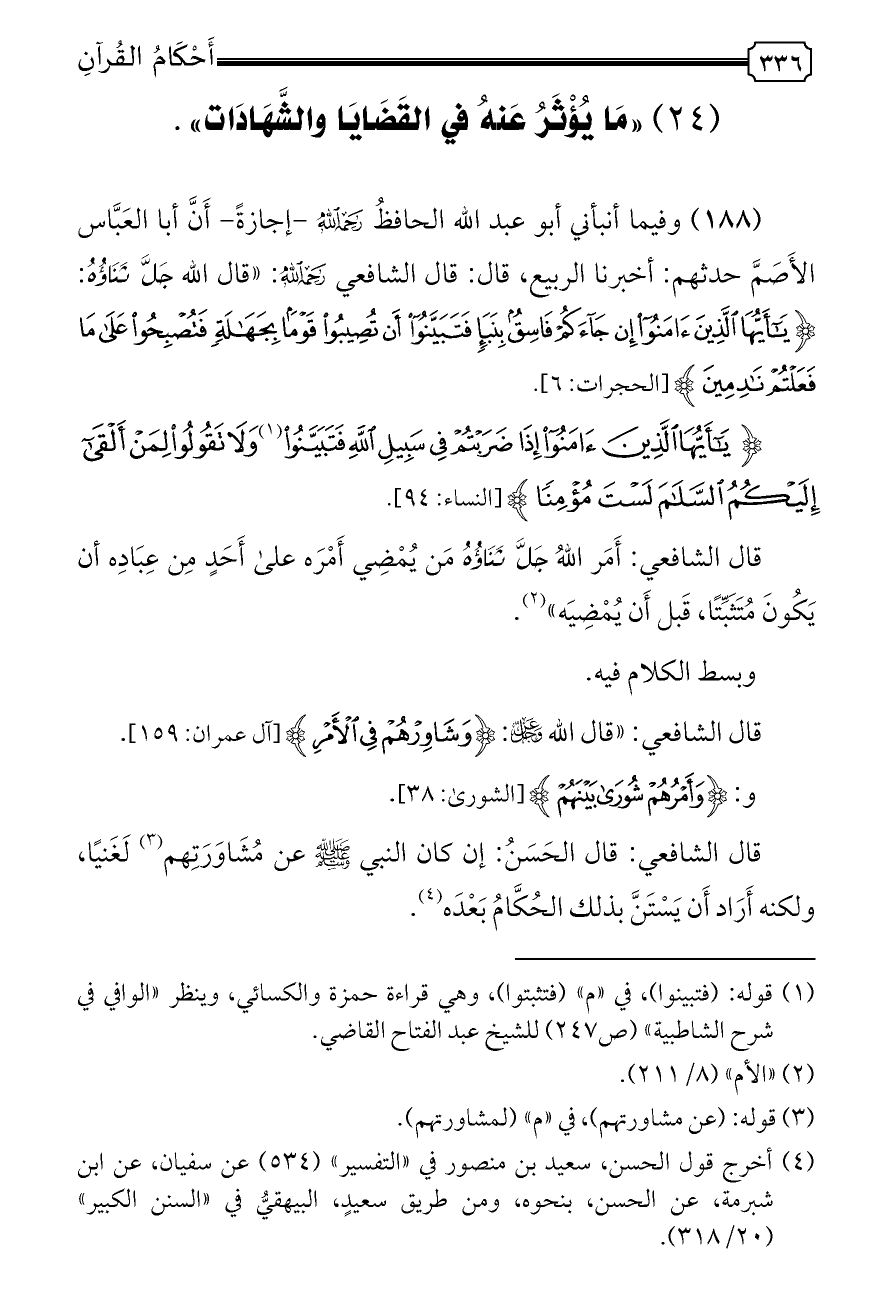 أَحْكَامُ القُرآنِ ٣٣٦
(٢٤) «مَا يُؤْثَرُ عَنهُ في القَضَايَا والشَّهَادَات» .
(١٨٨) وفيما أنبأني أبو عبد الله الحافظُ رَحِمَهُ اللَّهُ -إجازةً- أَنَّ أبا العَبَّاس
الأَصَمَّ حدثهم: أخبرنا الربيع، قال: قال الشافعي رَحِمَهُ اللَّهُ: «قال الله جَلَّ ثَنَاؤُهُ:
﴿يَٰٓأَيُّهَا ٱلَّذِينَ ءَامَنُوٓا۟ إِن جَآءَكُمْ فَاسِقٌۢ بِنَبَإٍ فَتَبَيَّنُوٓا۟ أَن تُصِيبُوا۟ قَوْمًۢا بِجَهَٰلَةٍ فَتُصْبِحُوا۟ عَلَىٰ مَا
فَعَلْتُمْ نَٰدِمِينَ﴾ [الحجرات: ٦].
﴿يَٰٓأَيُّهَا ٱلَّذِينَ ءَامَنُوٓا۟ إِذَا ضَرَبْتُمْ فِى سَبِيلِ ٱللَّهِ فَتَبَيَّنُوا۟(١) وَلَا تَقُولُوا۟ لِمَنْ أَلْقَىٰٓ
إِلَيْكُمُ ٱلسَّلَٰمَ لَسْتَ مُؤْمِنًا﴾ [النساء: ٩٤].
قال الشافعي: أَمَر اللهُ جَلَّ ثَنَاؤُهُ مَن يُمْضِي أَمْرَه علىٰ أَحَدٍ مِن عِبَادِه أن
يَكُونَ مُتَثَبِّتًا، قَبل أَن يُمْضِيَه»(٢).
وبسط الكلام فيه.
قال الشافعي: «قال الله عَزَّ وَجَلَّ: ﴿وَشَاوِرْهُمْ فِى ٱلْأَمْرِ﴾ [آل عمران: ١٥٩].
و: ﴿وَأَمْرُهُمْ شُورَىٰ بَيْنَهُمْ﴾ [الشورىٰ: ٣٨].
قال الشافعي: قال الحَسَنُ: إن كان النبي ﷺ عن مُشَاوَرَتِهم(٣) لَغَنيًا،
ولكنه أَرَاد أَن يَسْتَنَّ بذلك الحُكَّامُ بَعْدَه(٤).
(١) قوله: (فتبينوا)، في «م» (فتثبتوا)، وهي قراءة حمزة والكسائي، وينظر «الوافي في
شرح الشاطبية» (ص٢٤٧) للشيخ عبد الفتاح القاضي.
(٢) «الأم» (٨/ ٢١١).
(٣) قوله: (عن مشاورتهم)، في «م» (لمشاورتهم).
(٤) أخرج قول الحسن، سعيد بن منصور في «التفسير» (٥٣٤) عن سفيان، عن ابن
شبرمة، عن الحسن، بنحوه، ومن طريق سعيدٍ، البيهقيُّ في «السنن الكبير»
(٢٠/ ٣١٨).